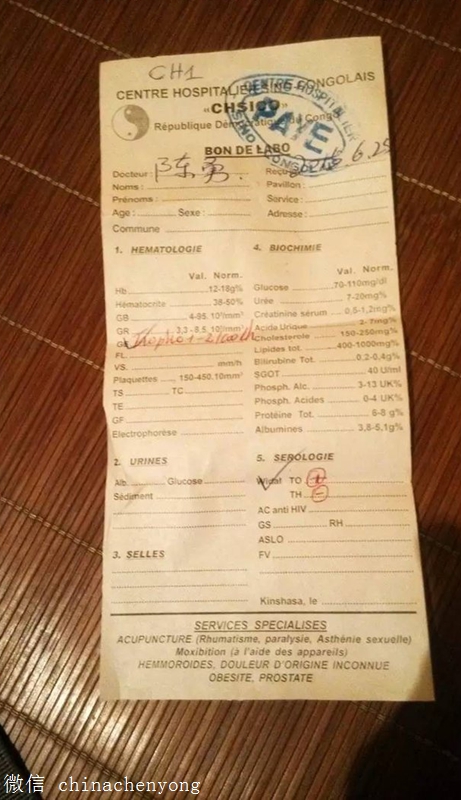 CH1
CENTRE HOSPITALIER SINO CONGOLAIS
"CHSICO"
République Démocratique du Congo
CENTRE HOSPITALIER
SINO CONGOLAIS
PAYE
BON DE LABO
Docteur : 陈勇
Noms :
Prénoms :
Age : Sexe :
Commune
Pavillon :
Service :
Adresse :
1. HEMATOLOGIE
Val. Norm.
Hb 12-18g%
Hématocrite 38-50%
GB
GR
FL
VS. mm/h
Plaquettes 150-450.10³mm³
TS TC
TE
GF
Electrophorèse
2. URINES
Alb. Glucose
Sédiment
3. SELLES
4. BIOCHIMIE
Val. Norm.
Glucose 70-110mg/dl
Urée 7-20mg%
Créatinine sérum 0,5-1,2mg%
Acide Urique 2-7mg%
Cholesterole 150-250mg%
Lipides tot. 400-1000mg%
Bilirubine Tot. 0.2-0,4g%
SGOT 40 U/ml
Phosph. Alc. 3-13 UK%
Phosph. Acides 0-4 UK%
Protéine Tot. 6-8 g%
Albumines 3,8-5,1g%
5. SEROLOGIE
Widal TO
TH -
AC anti HIV
GS RH
ASLO
FV
Kinshasa, le
SERVICES SPECIALISES
ACUPUNCTURE (Rhumatisme, paralysie, Asthénie sexuelle)
Moxibition (à l'aide des appareils)
HEMMOROIDES, DOULEUR D'ORIGINE INCONNUE
OBESITE, PROSTATE
微信 chinachenyong